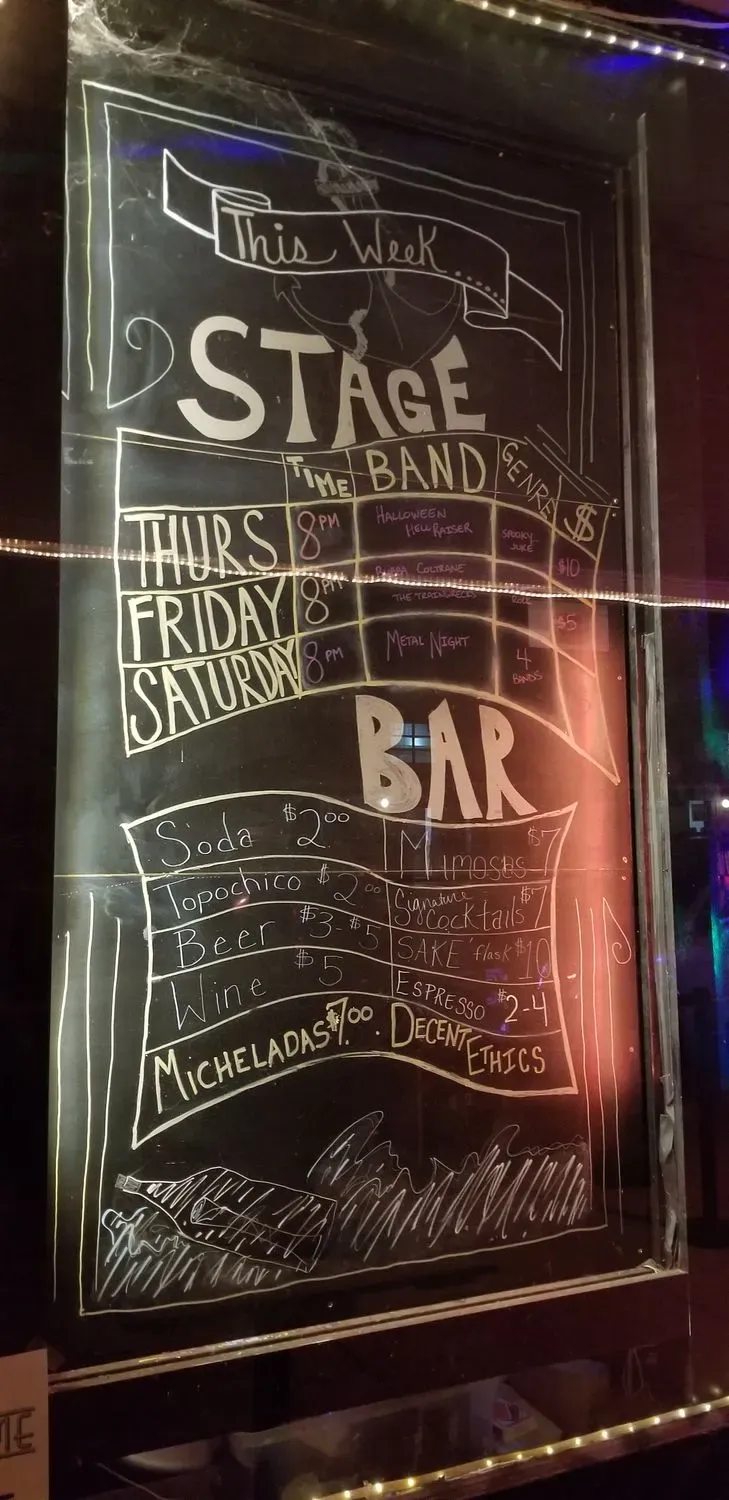 This Week
STAGE
TIME BAND GENRE $
THURS 8PM HALLOWEEN HELLRAISER SPOOKY JUKE $10
FRIDAY 8PM BUBBA COLTRANE THE TRAINWRECKS ROCK $5
SATURDAY 8PM METAL NIGHT 4 BANDS
BAR
Soda $2.00 Mimosas $7
Topochico $2.00 Signature Cocktails $7
Beer $3-$5 SAKE' flask $10
Wine $5 ESPRESSO $2-4
MICHELADAS $7.00. DECENT ETHICS